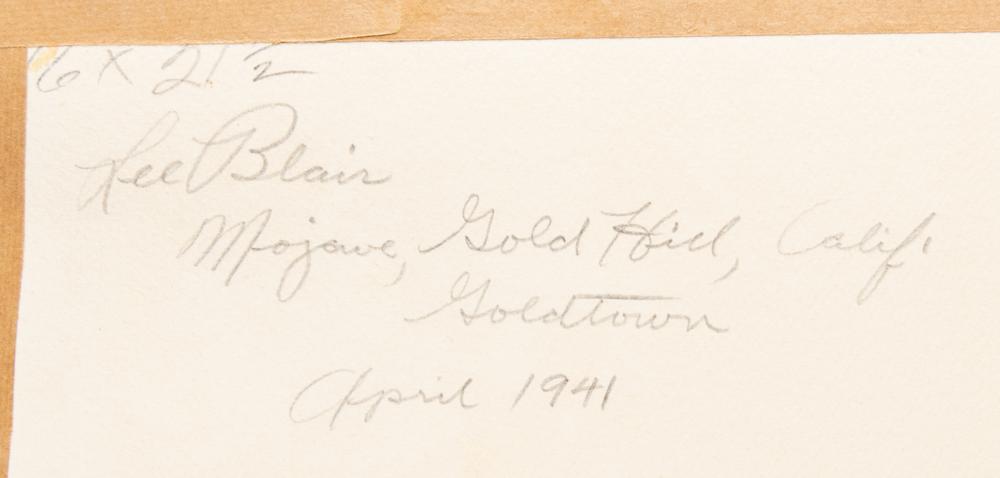 6 x 21 2
Lee Blair
Mojave, Gold Hill, Calif.
Goldtown
April 1941